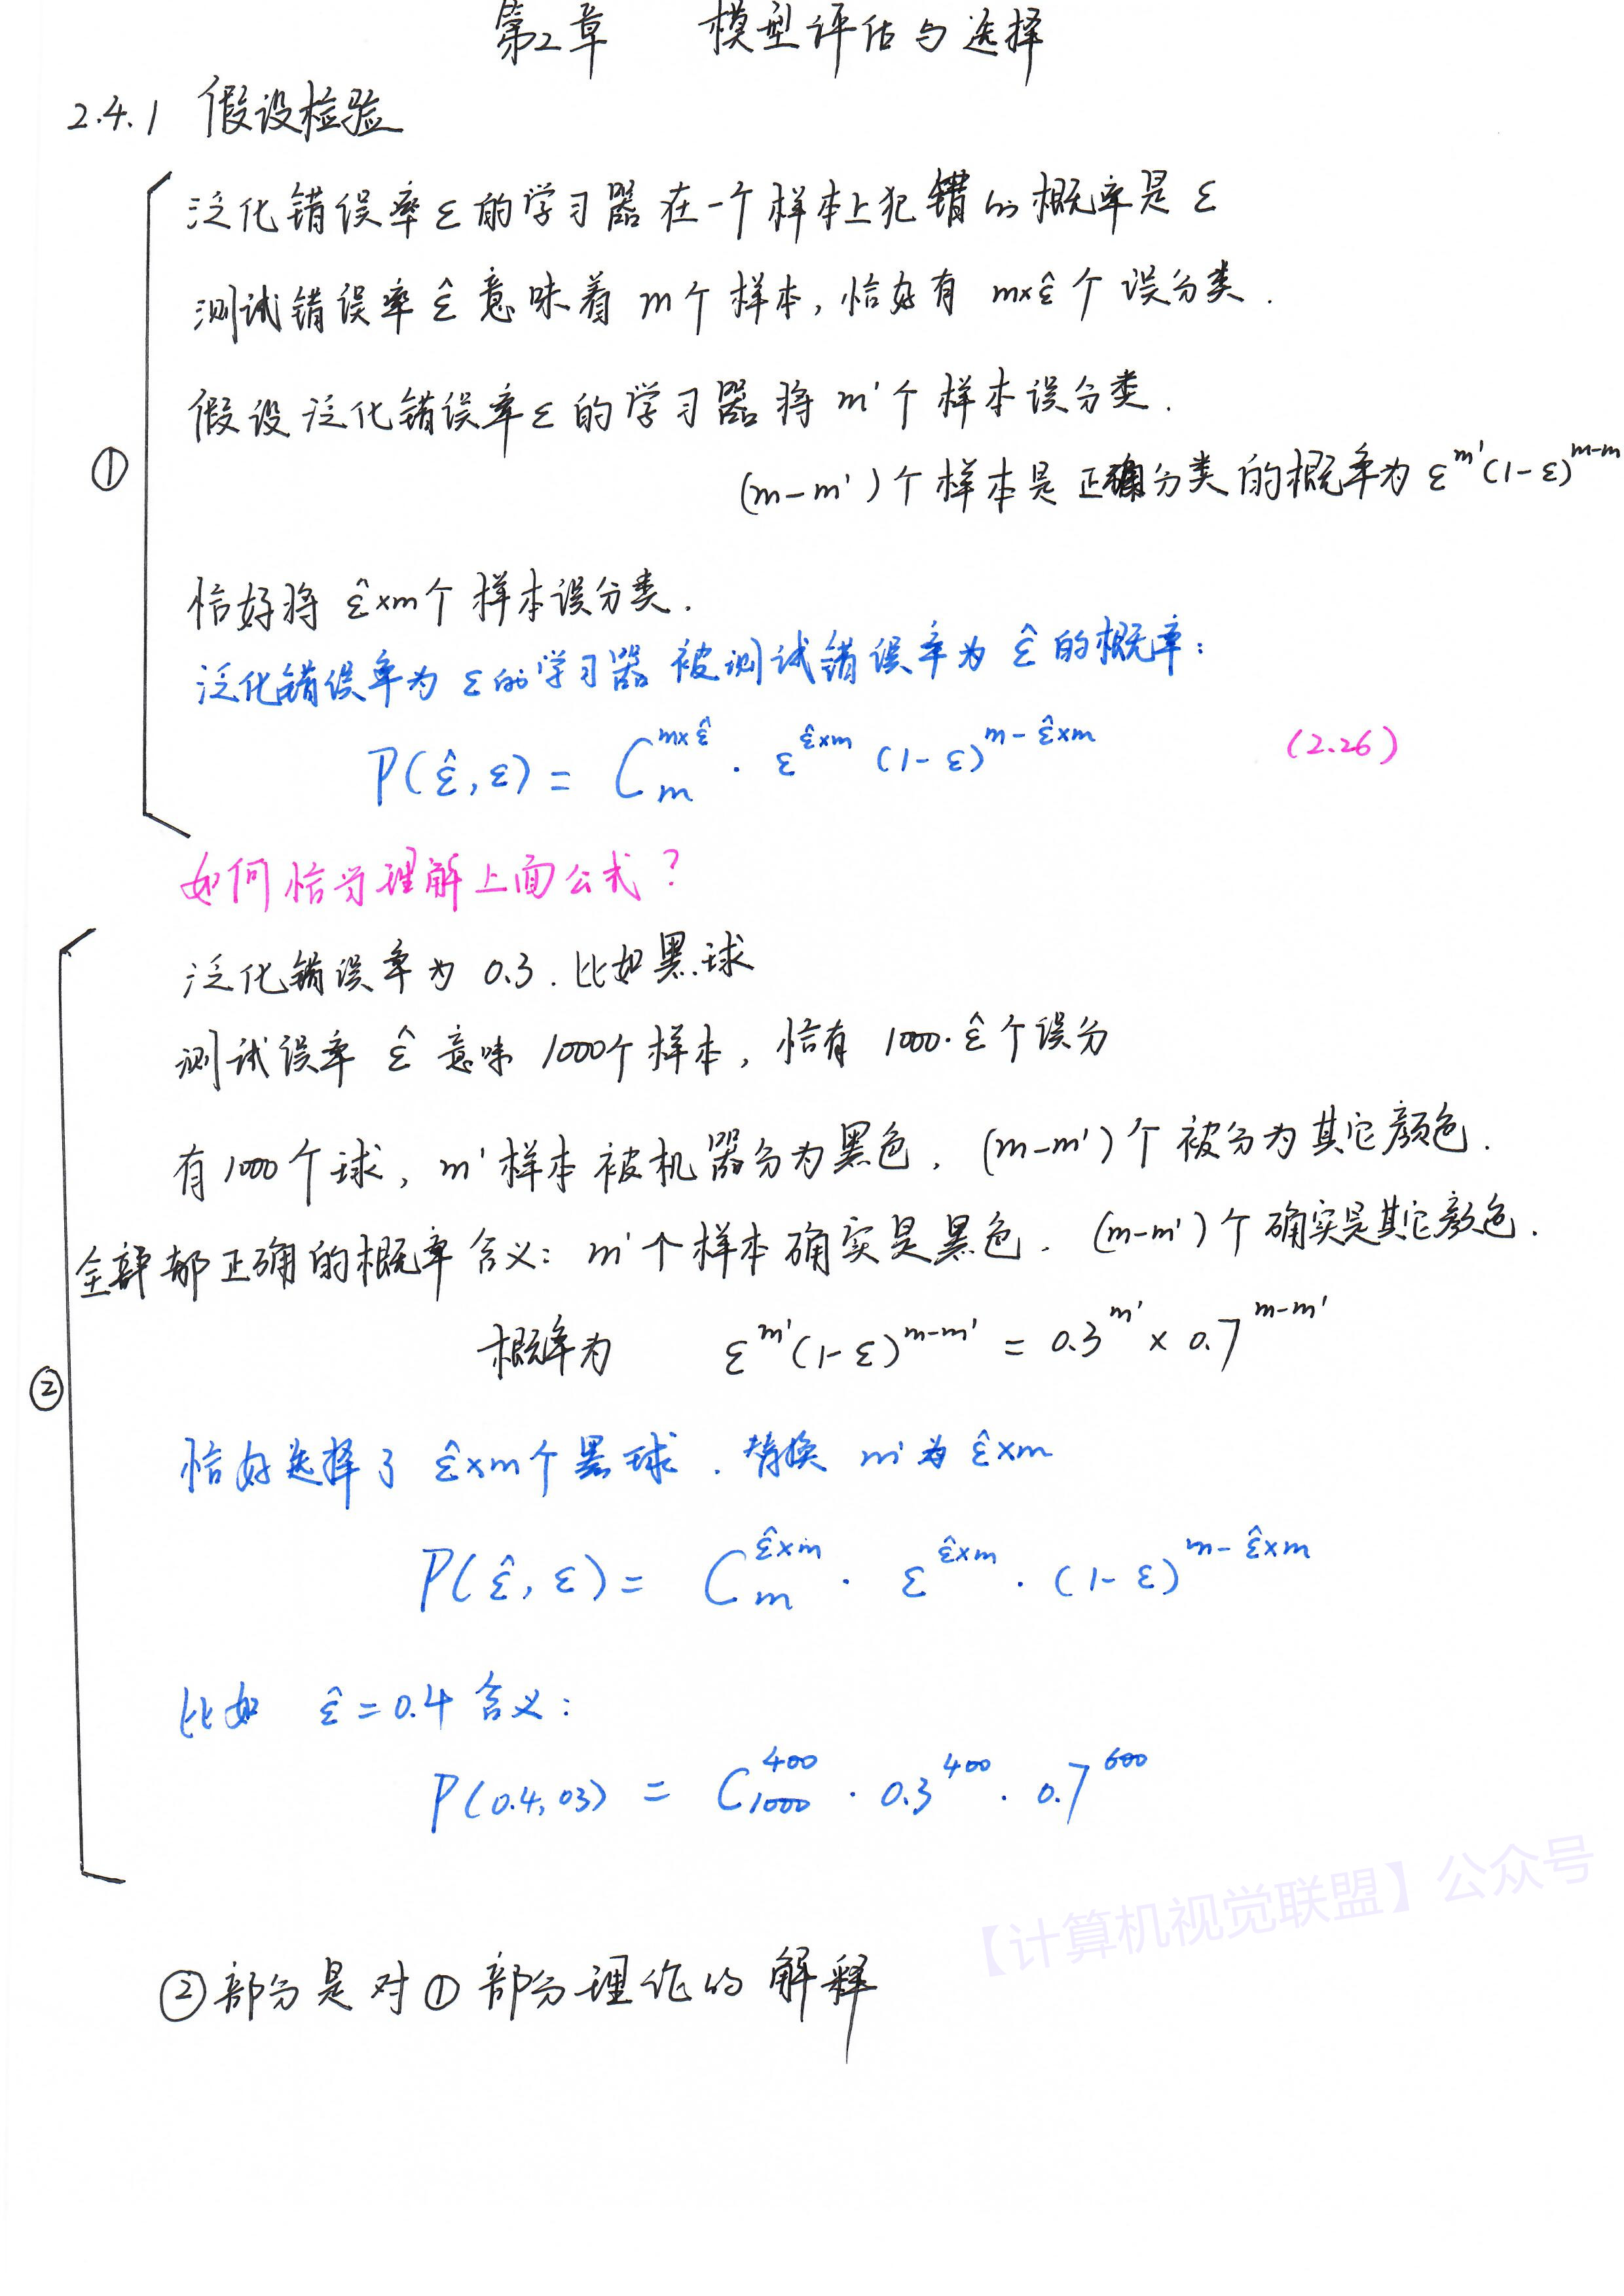 第2章 模型评估与选择
2.4.1 假设检验
泛化错误率ε的学习器在一个样本上犯错的概率是 ε
测试错误率 ε̂ 意味着 m个样本, 恰好有 m×ε̂ 个误分类.
假设泛化错误率ε的学习器将 m'个样本误分类.
①
(m-m')个样本是正确分类的概率为 ε^m'(1-ε)^m-m
恰好将 ε̂×m个样本误分类.
泛化错误率为 ε的学习器被测试错误率为 ε̂ 的概率:
P(ε̂,ε) = C_m^m×ε̂ · ε^ε̂×m (1-ε)^m-ε̂×m (2.26)
如何恰当理解上面公式?
泛化错误率为 0.3. 比如黑球
测试误率 ε̂ 意味 1000个样本, 恰有 1000·ε̂ 个误分
有1000个球, m'样本被机器分为黑色, (m-m')个被分为其它颜色.
全部都正确的概率含义: m'个样本确实是黑色. (m-m')个确实是其它颜色.
概率为 ε^m'(1-ε)^m-m' = 0.3^m' × 0.7^m-m'
②
恰好选择了 ε̂×m个黑球. 替换 m'为 ε̂×m
P(ε̂, ε) = C_m^ε̂×m · ε^ε̂×m · (1-ε)^m-ε̂×m
比如 ε̂=0.4 含义:
P(0.4, 03) = C_1000^400 · 0.3^400 · 0.7^600
【计算机视觉联盟】公众号
②部分是对①部分理论的解释